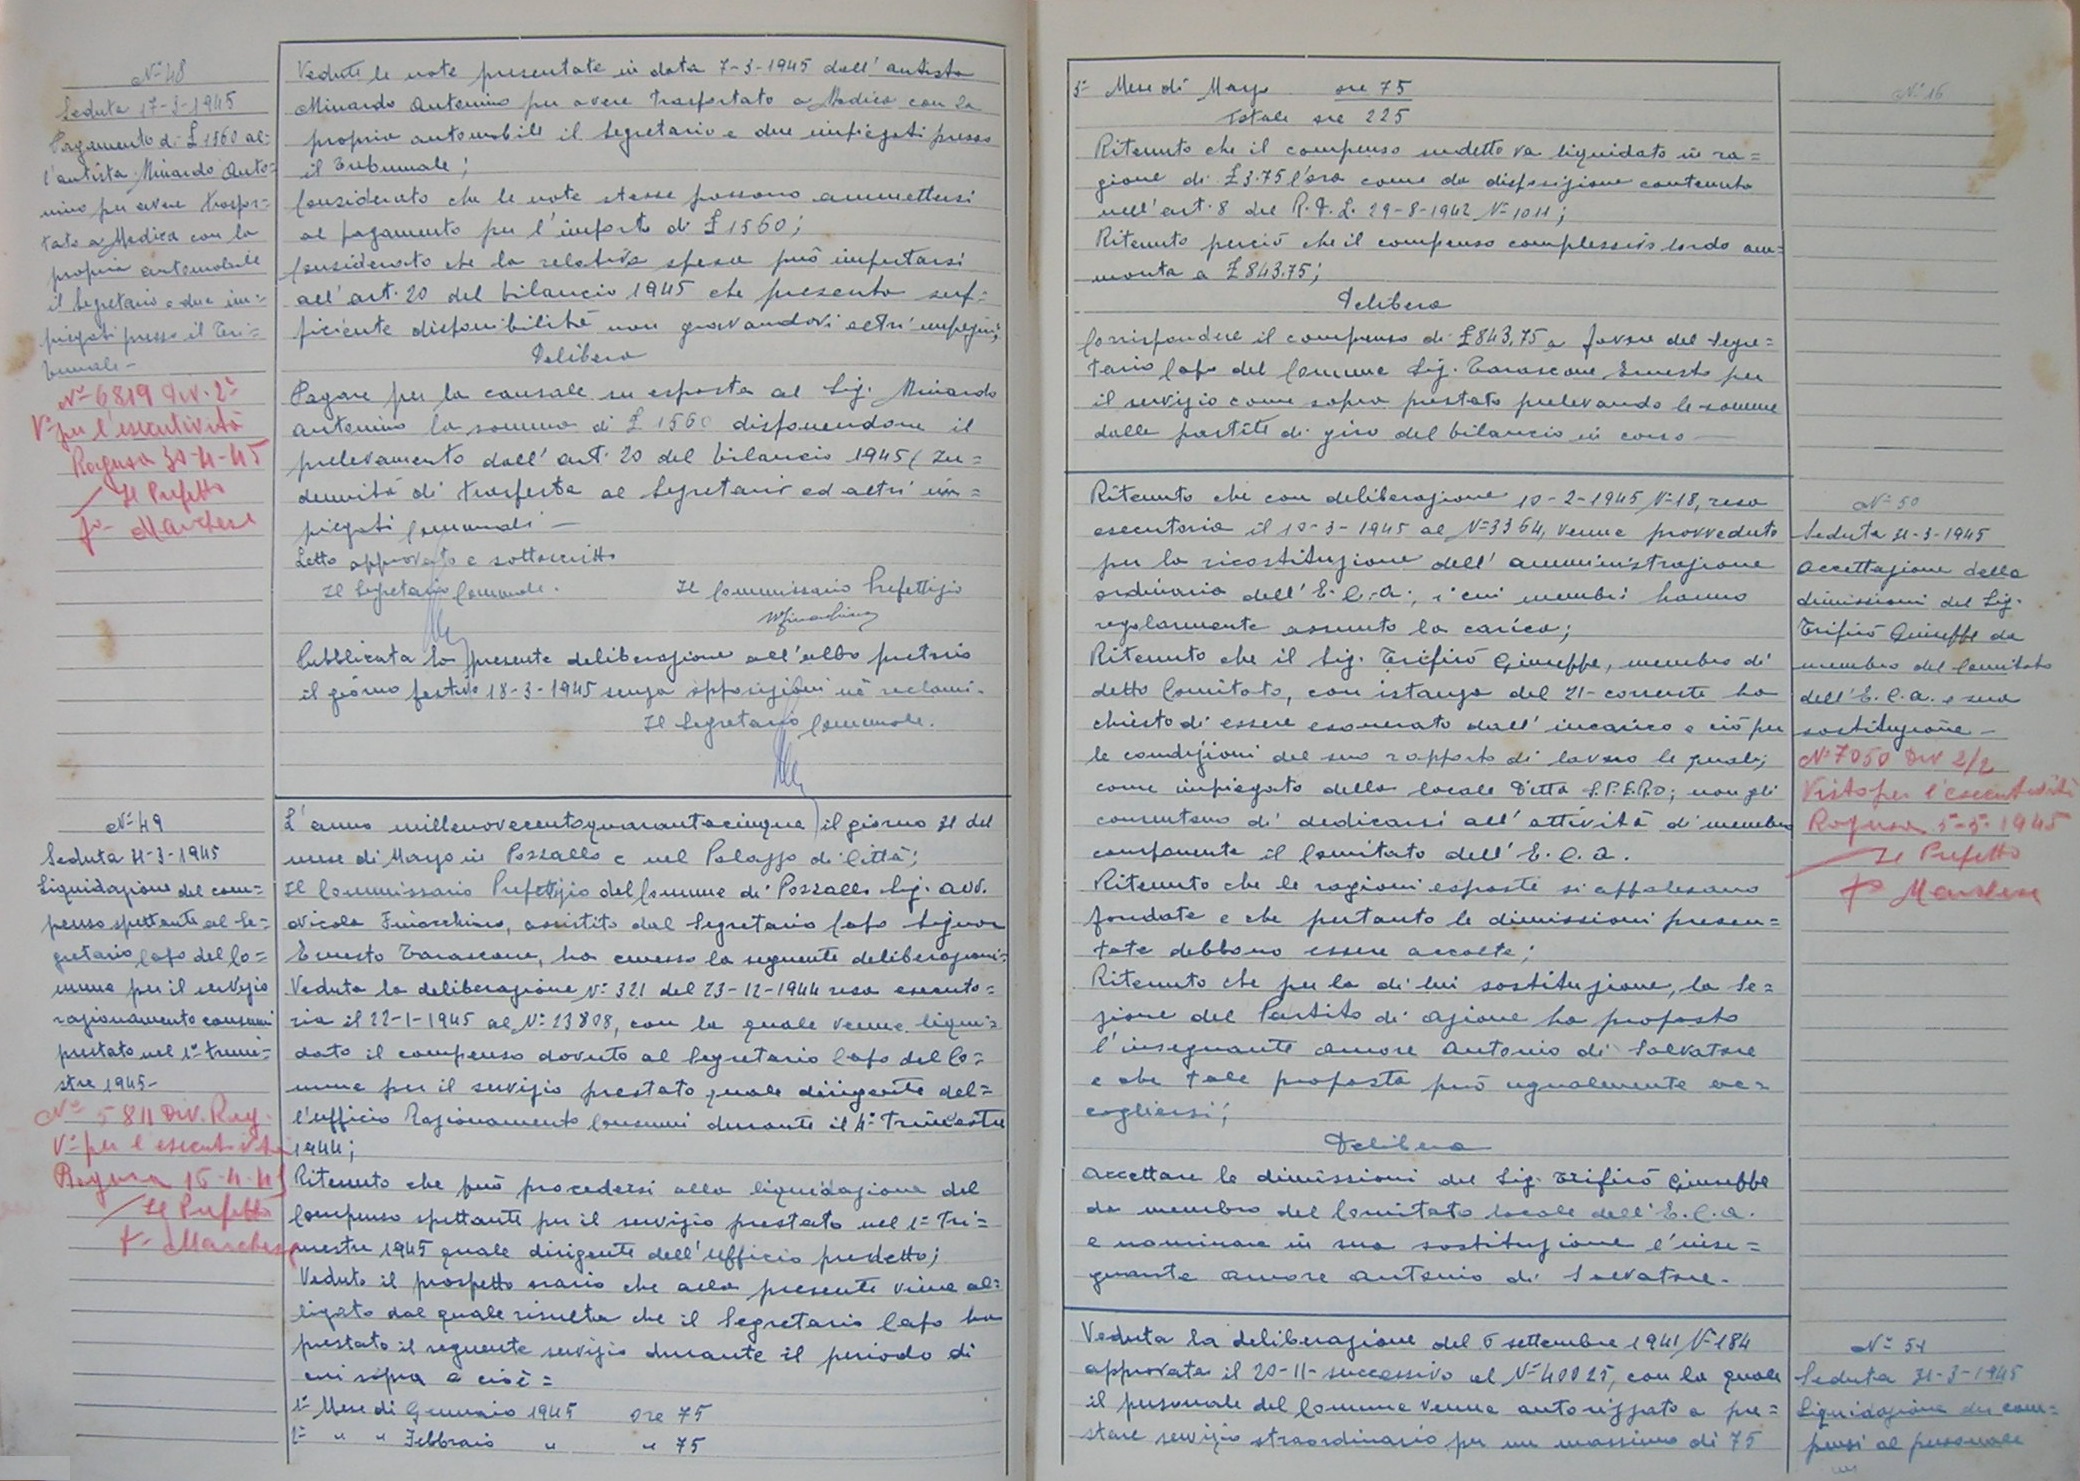 N° 48
Seduta 17-3-1945
Pagamento di £ 1560 al=
l'autista Minardo Anto=
nino per avere traspor=
tato a Modica con la
propria automobile
il Segretario e due im=
piegati presso il Tri=
bunale -
N° 6819 Div. 2ª
V° per l'esecutività
Ragusa 30-4-45
Il Prefetto
f° Marchese
Vedute le note presentate in data 7-3-1945 dall'autista
Minardo Antonino per avere trasportato a Modica con la
propria automobile il Segretario e due impiegati presso
il Tribunale;
Considerato che le note stesse possono ammettersi
al pagamento per l'importo di £ 1560;
Considerato che la relativa spesa può imputarsi
all'art. 20 del bilancio 1945 che presenta suf=
ficiente disponibilità non gravandovi altri impegni;
Delibera
Pagare per la causale su esposta al Sig. Minardo
Antonino la somma di £ 1560 disponendone il
prelevamento dall'art. 20 del bilancio 1945 (In=
dennità di trasferta al Segretario ed altri im=
piegati Comunali -
Letto approvato e sottoscritto
Il Segretario Comunale. Il Commissario Prefettizio
Pubblicata la presente deliberazione all'albo pretorio
il giorno festivo 18-3-1945 senza opposizioni nè reclami.
Il Segretario Comunale.
N° 49
Seduta 31-3-1945
Liquidazione del com=
penso spettante al Se=
gretario Capo del Co=
mune per il servizio
razionamento consumi
prestato nel 1° trime=
stre 1945-
N° 5811 Div. Rag.
V° per l'esecutività
Ragusa 16-4-45
Il Prefetto
f° Marchese
L'anno millenovecentoquarantacinque il giorno 31 del
mese di Marzo in Pozzallo e nel Palazzo di Città;
Il Commissario Prefettizio del Comune di Pozzallo Sig. avv.
Nicola Finocchiaro, assistito dal Segretario Capo Signor
Ernesto Tarascone, ha emesso la seguente deliberazione:
Veduta la deliberazione N° 321 del 23-12-1944 resa esecuto=
ria il 22-1-1945 al N° 23808, con la quale venne liqui=
dato il compenso dovuto al Segretario Capo del Co=
mune per il servizio prestato quale dirigente del=
l'ufficio Razionamento Consumi durante il 4° Trimestre
1944;
Ritenuto che può procedersi alla liquidazione del
Compenso spettante per il servizio prestato nel 1° Tri=
mestre 1945 quale dirigente dell'Ufficio predetto;
Veduto il prospetto orario che alla presente viene al=
ligato dal quale risulta che il Segretario Capo ha
prestato il seguente servizio durante il periodo di
cui sopra e cioè =
1° Mese di Gennaio 1945 ore 75
2° " " Febbraio " " 75
3° Mese di Marzo ore 75
Totale ore 225
Ritenuto che il compenso sudetto va liquidato in ra=
gione di £ 3.75 l'ora come da disposizione contenuta
nell'art. 8 del R.D.L. 29-8-1942 N° 1011;
Ritenuto perciò che il compenso complessivo lordo am=
monta a £ 843.75;
Delibera
Corrispondere il compenso di £ 843,75 a favore del Segre=
tario Capo del Comune Sig. Tarascone Ernesto per
il servizio come sopra prestato prelevando le somme
dalle partite di giro del bilancio in corso -
N° 16
Ritenuto che con deliberazione 10-2-1945 N° 18, resa
esecutoria il 10-3-1945 al N° 3364, venne provveduto
per la ricostituzione dell'amministrazione
ordinaria dell'E.C.A., i cui membri hanno
regolarmente assunto la carica;
Ritenuto che il Sig. Trifirò Giuseppe, membro di
detto Comitato, con istanza del 21-corrente ha
chiesto di essere esonerato dall'incarico e ciò per
le condizioni del suo rapporto di lavoro le quali,
come impiegato della locale Ditta S.P.E.R.O; non gli
consentono di dedicarsi all'attività di membro
componente il Comitato dell'E.C.A.
Ritenuto che le ragioni esposte si appalesano
fondate e che pertanto le dimissioni presen=
tate debbono essere accolte;
Ritenuto che per la di lui sostituzione, la Se=
zione del Partito di Azione ha proposto
l'insegnante Amore Antonio di Salvatore
e che tale proposta può ugualmente ac=
cogliersi;
Delibera
Accettare le dimissioni del Sig. Trifirò Giuseppe
da membro del Comitato locale dell'E.C.A.
e nominare in sua sostituzione l'inse=
gnante Amore Antonio di Salvatore.
N° 50
Seduta 31-3-1945
Accettazione della
dimissioni del Sig.
Trifirò Giuseppe da
membro del Comitato
dell'E.C.A. e sua
sostituzione -
N° 7050 Div 2/2
Visto per l'esecutività
Ragusa 5-5-1945
Il Prefetto
f° Marchese
Veduta la deliberazione del 6 settembre 1941 N° 184
approvata il 20-11-successivo al N° 40025, con la quale
il personale del Comune venne autorizzato a pre=
stare servizio straordinario per un massimo di 75
N° 51
Seduta 31-3-1945
Liquidazione dei com=
pensi al personale